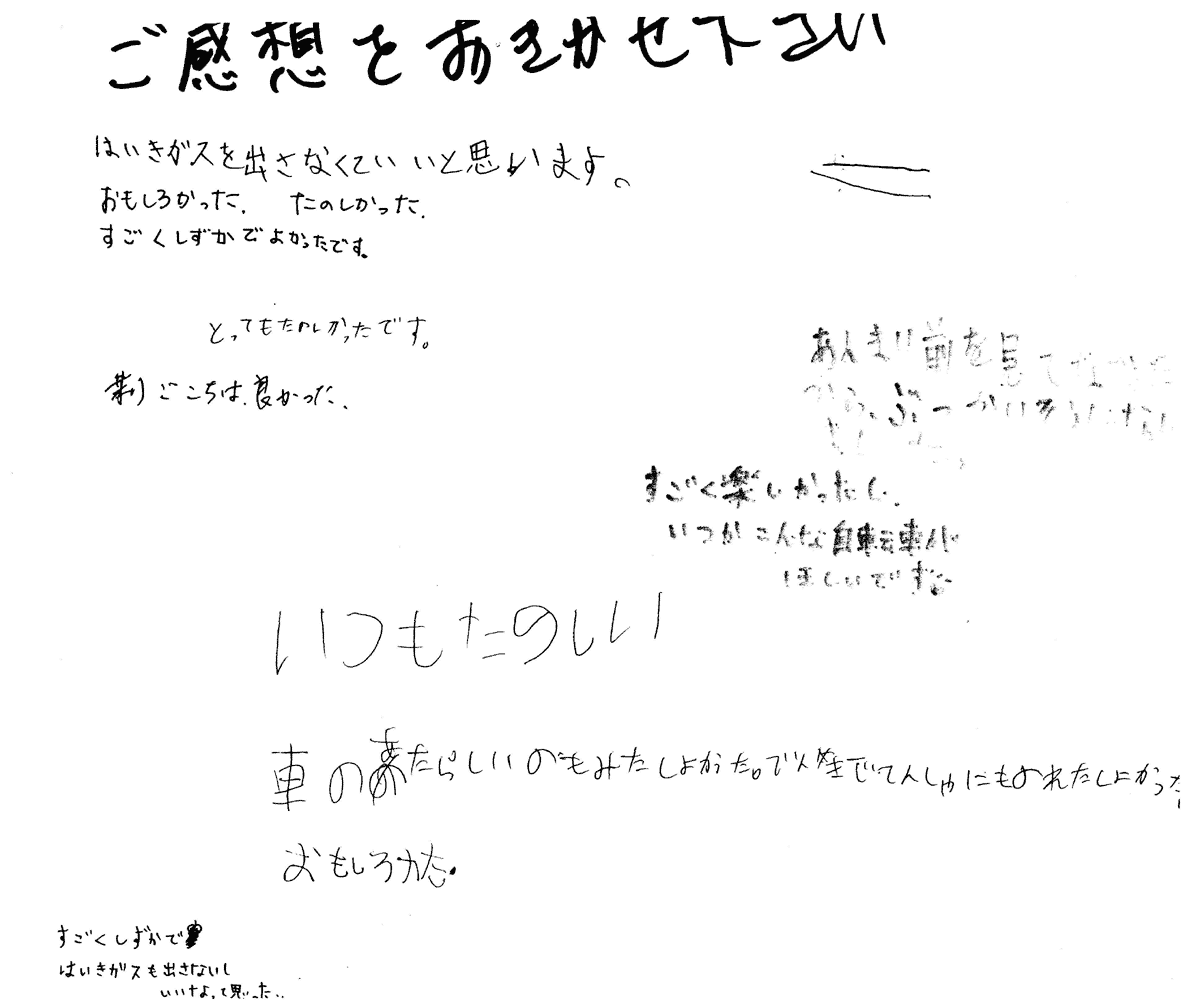 ご感想をおきかせ下さい
はいきガスを出さなくていいと思います。
おもしろかった. たのしかった.
すごくしずかでよかったです。
とってもたのしかったです。
乗りごこちは良かった.
あんまり前を見てなかった
から、ぶつかいそうになり
すごく楽しかったし、
いつかこんな自転車が
ほしいです。
いつもたのしい
車のあたらしいのもみたしよかった。で人生でてんしゃにものれたしよかった
おもしろかた.
すごくしずかで
はいきガスも出さないし
いいなぁって思った..